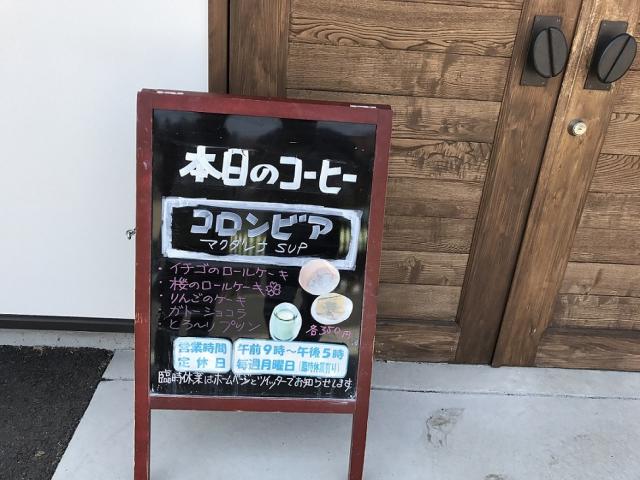 本日のコーヒー
コロンビア
マグダレナ SUP
・イチゴのロールケーキ
・桜のロールケーキ
・りんごのケーキ
・ガトーショコラ
・とろ〜りプリン
各350円
営業時間 午前9時〜午後5時
定休日 毎週月曜日(臨時休業有り)
臨時休業はホームページとツイッターでお知らせします